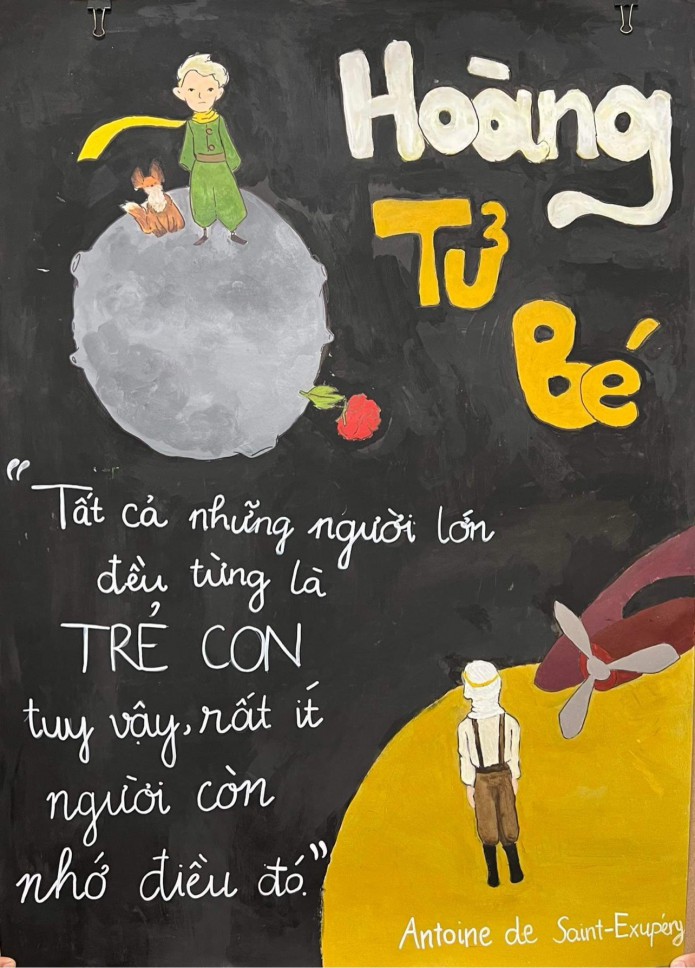 Hoàng
Tử
Bé
“Tất cả những người lớn
đều từng là
TRẺ CON
tuy vậy, rất ít
người còn
nhớ điều đó.”
Antoine de Saint-Exupéry